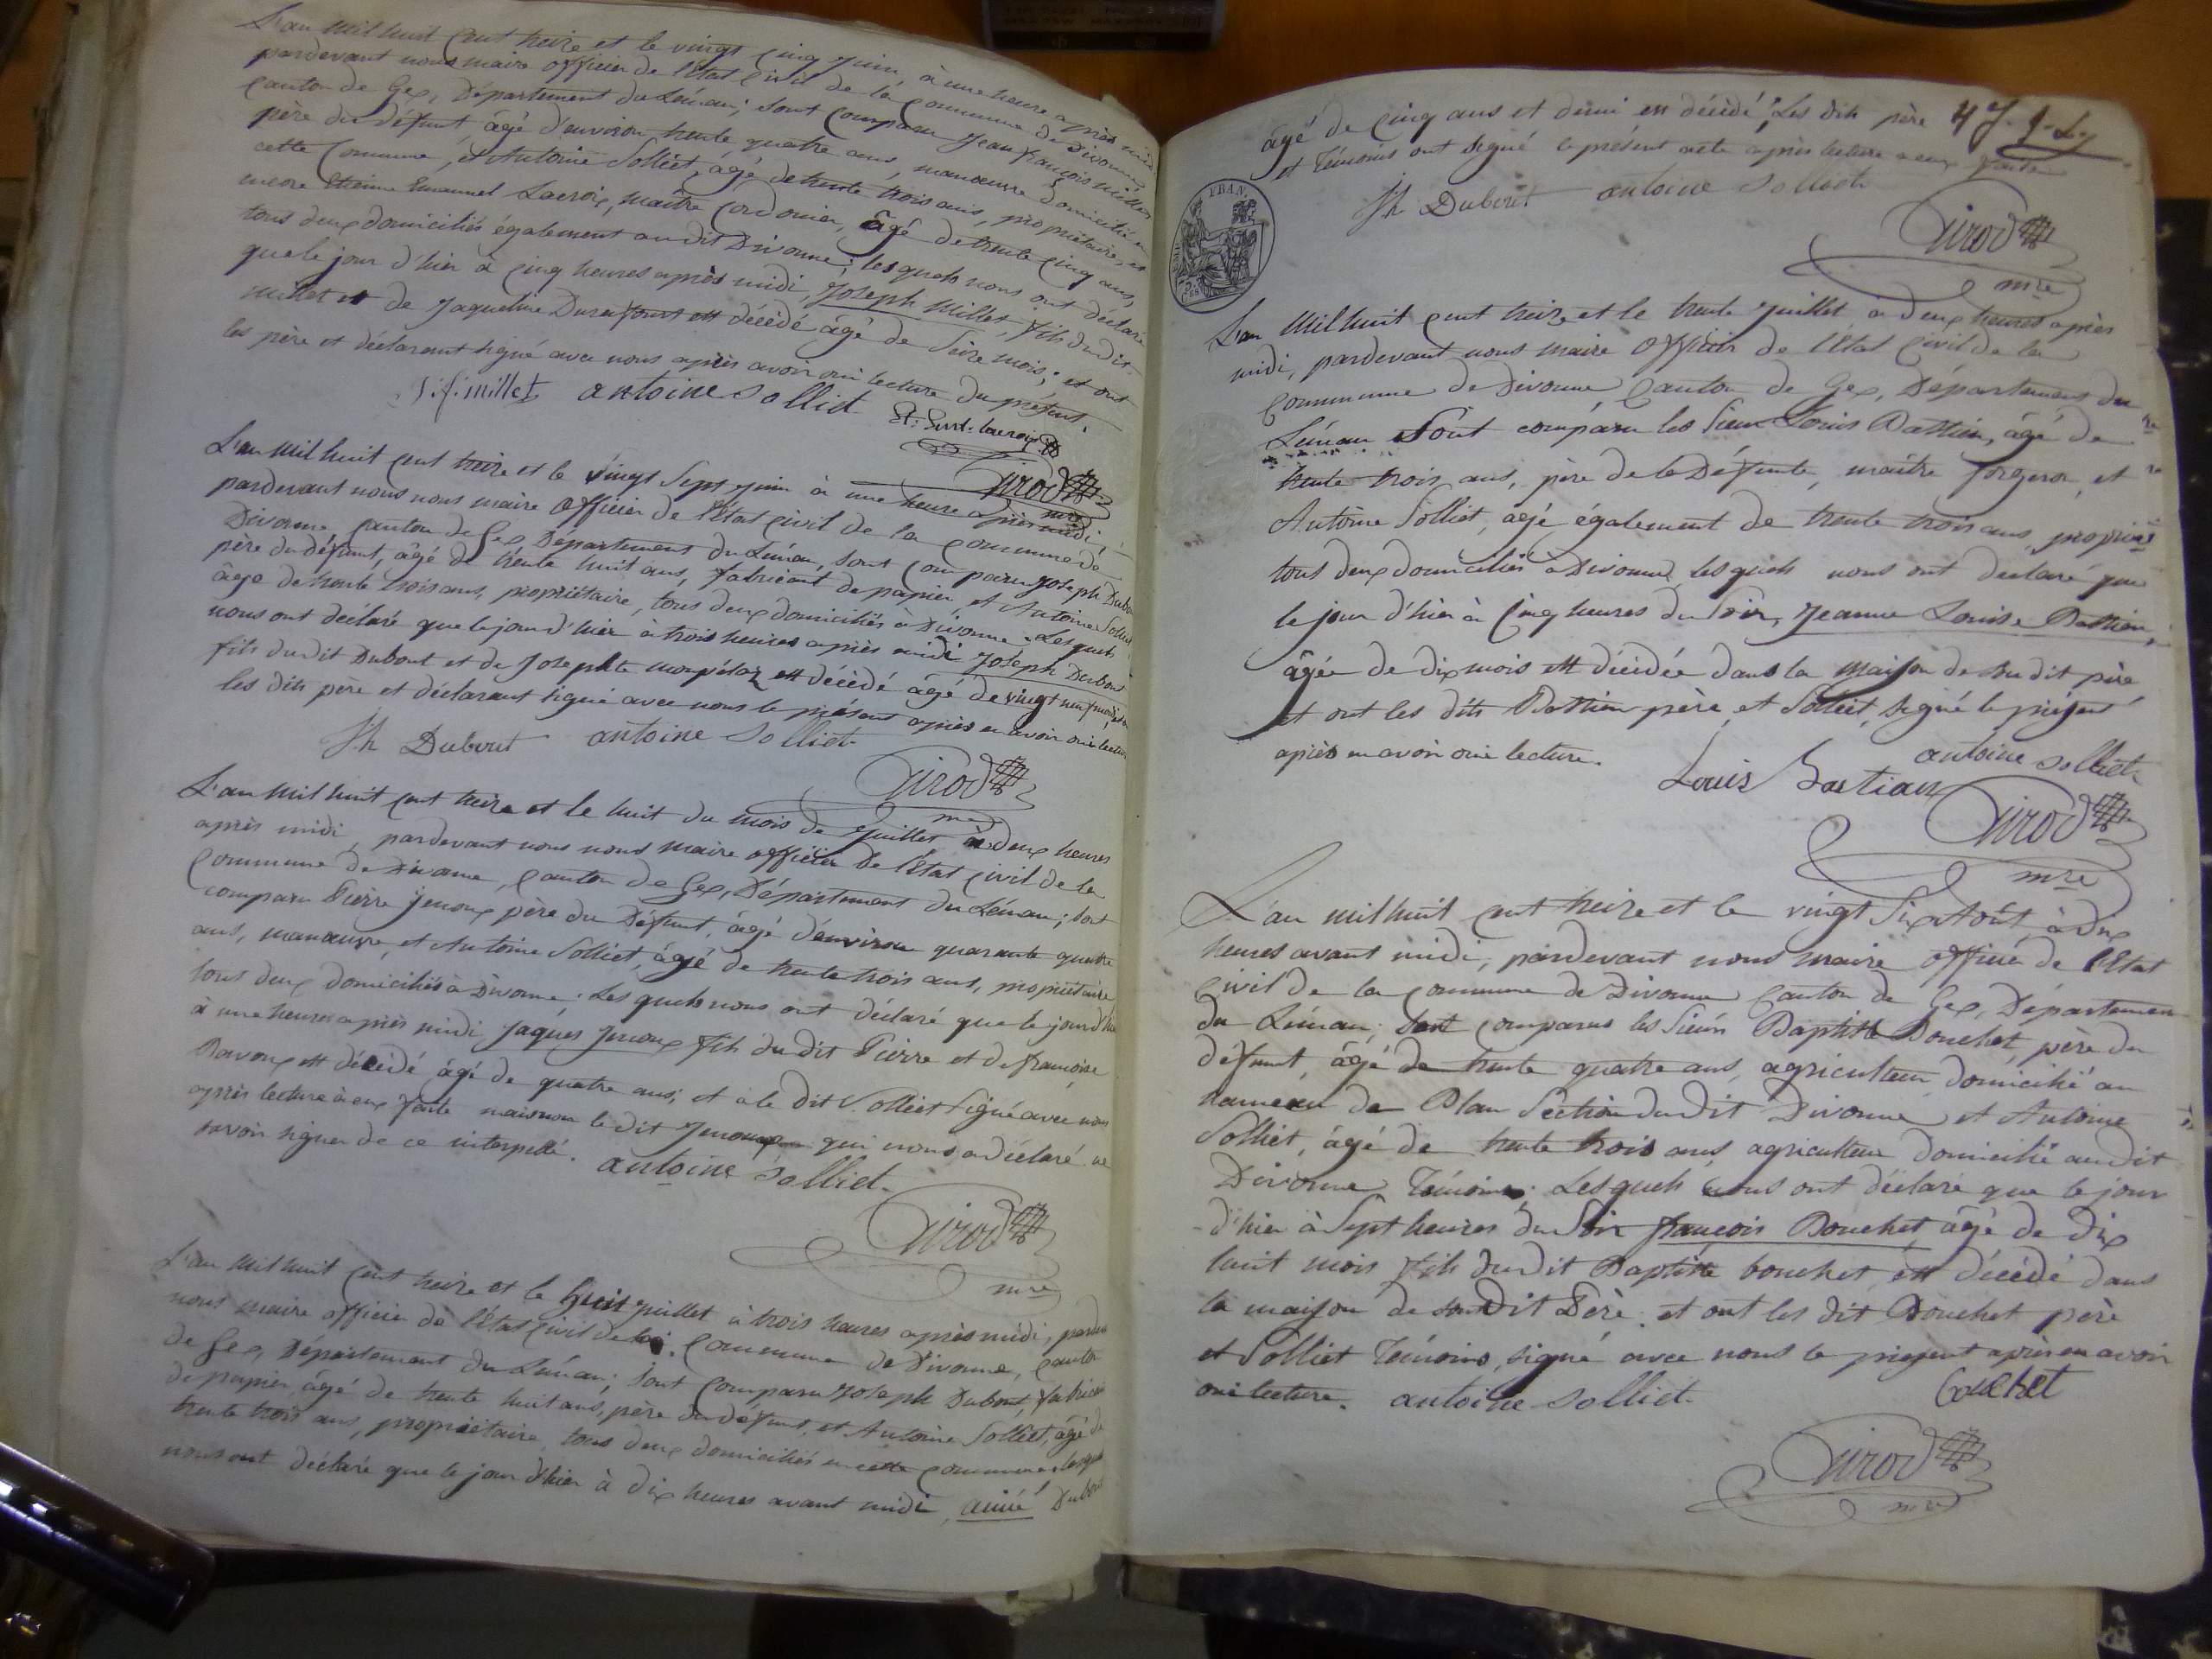 L'an mil huit cent treize et le vingt cinq juin, à une heure après midi
pardevant nous maire officier de l'État civil de la commune de Divonne
canton de Gex, Département du Léman; sont comparu Jean françois millet
père du défunt, âgé d'environ trente quatre ans, manœuvre domicilié en
cette Commune, et Antoine Solliet, âgé de trente trois ans, propriétaire, et
encore Etienne Emanuel Lacroix, maître cordonier, âgé de trente cinq ans,
tous deux domiciliés également au dit Divonne; lesquels nous ont déclaré
que le jour d'hier à cinq heures après midi, Joseph Millet, fils du dit
Millet et de Jaqueline Durafourt est décédé âgé de Seize mois; et ont
les père et déclarant signé avec nous après avoir oui lecture du présent.
J. f. millet antoine Solliet
Et: Eml: lacroix
Girod
mre
L'an mil huit cent treize et le vingt Sept juin à une heure après midi
pardevant nous nous maire officier de l'État civil de la commune de
Divonne canton de Gex Département du Léman, sont comparu Joseph Dubout
père du défunt, âgé de trente huit ans, fabricant de papier, et Antoine Solliet
âgé de trente trois ans, propriétaire, tous deux domiciliés à Divonne. Lesquels
nous ont déclaré que le jour d'hier à trois heures après midi Joseph Dubout
fils du dit Dubout et de Josephte est décédé âgé de vingt neuf mois
les dits père et déclarant signé avec nous le présent après en avoir oui lecture
Jh Dubout antoine Solliet
Girod
mre
L'an mil huit cent treize et le huit du mois de juillet à deux heures
après midi, pardevant nous nous maire officier de l'État civil de la
commune de Divonne, canton de Gex, Département du Léman; sont
comparu Pierre Jenoux père du Défunt, âgé d'environ quarante quatre
ans, manœuvre, et Antoine Solliet, âgé de trente trois ans, propriétaire
tous deux domiciliés à Divonne. Lesquels nous ont déclaré que le jour d'hier
à une heure après midi Jaques Jenoux fils du dit Pierre et de françoise
Ravoux est décédé âgé de quatre ans; et a le dit Solliet signé avec nous
après lecture à eux faite mais non le dit Jenoux qui nous a déclaré ne
savoir signer de ce interpellé. antoine Solliet
Girod
mre
L'an mil huit cent treize et le huit juillet à trois heures après midi, pardevant
nous maire officier de l'État civil de la Commune de Divonne, canton
de Gex, Département du Léman; sont comparu Joseph Dubout, fabricant
de papier, âgé de trente huit ans, père du défunt, et Antoine Solliet, âgé de
trente trois ans, propriétaire, tous deux domiciliés en cette commune. Lesquels
nous ont déclaré que le jour d'hier à dix heures avant midi, aimé Dubout
âgé de cinq ans et demi est décédé; Les dits père
et Témoins ont signé le présent acte après lecture à eux faite
Jh Dubout antoine Solliet
Girod
mre
L'an Mil huit cent treize et le trente juillet à deux heures après
midi, pardevant nous maire officier de l'État civil de la
commune de Divonne, canton de Gex, Département du
Léman Sont comparu les Sieur Louis Bastian, âgé de
trente trois ans, père de la Défunte, maître forgeron, et
Antoine Solliet, âgé également de trente trois ans
tous deux domiciliés à Divonne, lesquels nous ont déclaré que
le jour d'hier à cinq heures du Soir, Jeanne Louise Bastian,
âgée de dix mois est décédée dans la maison de du dit père
et ont les dits Bastian père, et Solliet, signé le présent
après en avoir oui lecture.
antoine solliet
Louis Bastian
Girod
mre
L'an mil huit cent treize et le vingt Six Août, à dix
heures avant midi, pardevant nous maire officier de l'État
civil de la commune de Divonne canton de Gex, Département
du Léman; Sont comparus les Sieurs Baptiste Bouchet, père du
défunt, âgé de trente quatre ans, agriculteur domicilié au
hameau de Plan Section du dit Divonne, et Antoine
Solliet, âgé de trente trois ans, agriculteur domicilié au dit
Divonne Témoins; Lesquels nous ont déclaré que le jour
d'hier à Sept heures du Soir françois Bouchet, âgé de dix
huit mois fils du dit Baptiste bouchet, est décédé dans
la maison de son dit Père; et ont les dit Bouchet père
et Solliet Témoins, signé avec nous le présent après en avoir
oui lecture. antoine Solliet
Bouchet
Girod
mre